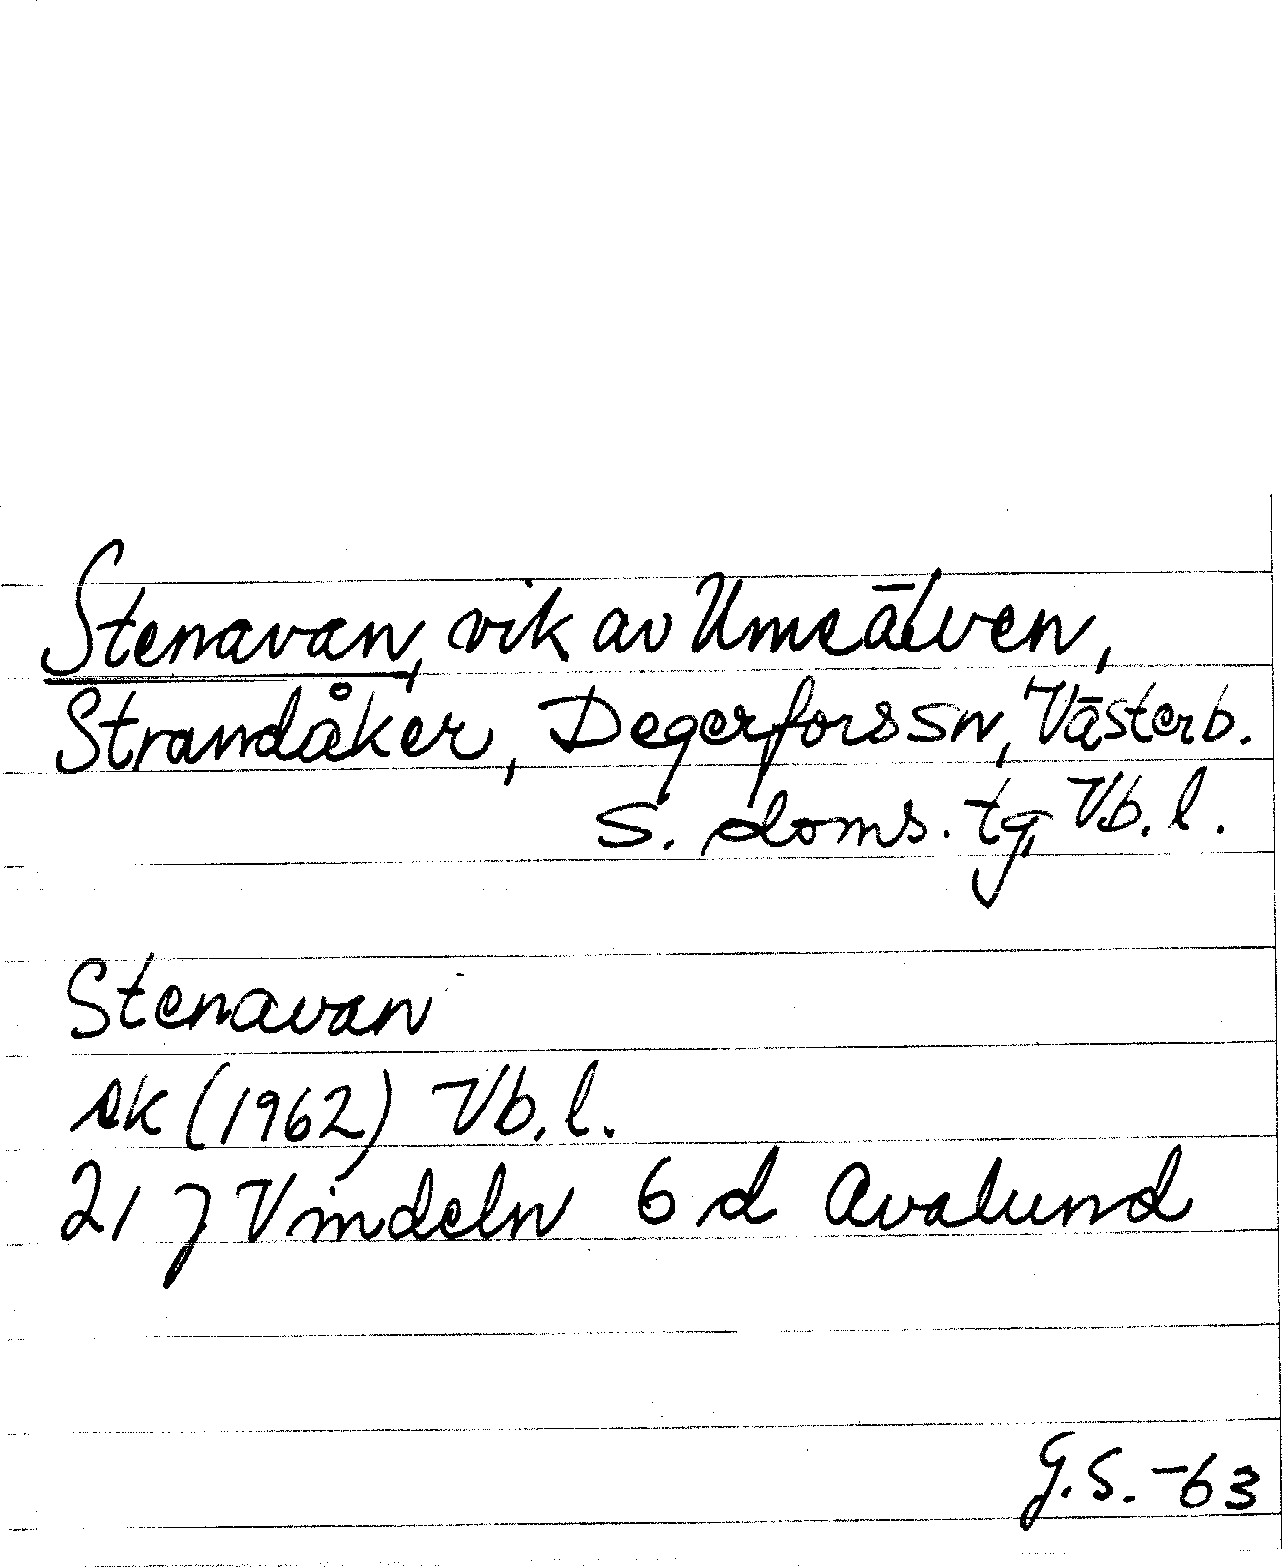 Stenavan, vik av Umeälven,
Strandåker, Degerfors sn, Västerb.
S. doms. tg, Vb. l.
Stenavan
ek (1962) Vb. l.
21 J Vindeln 6 d Avalund
G.S. -63